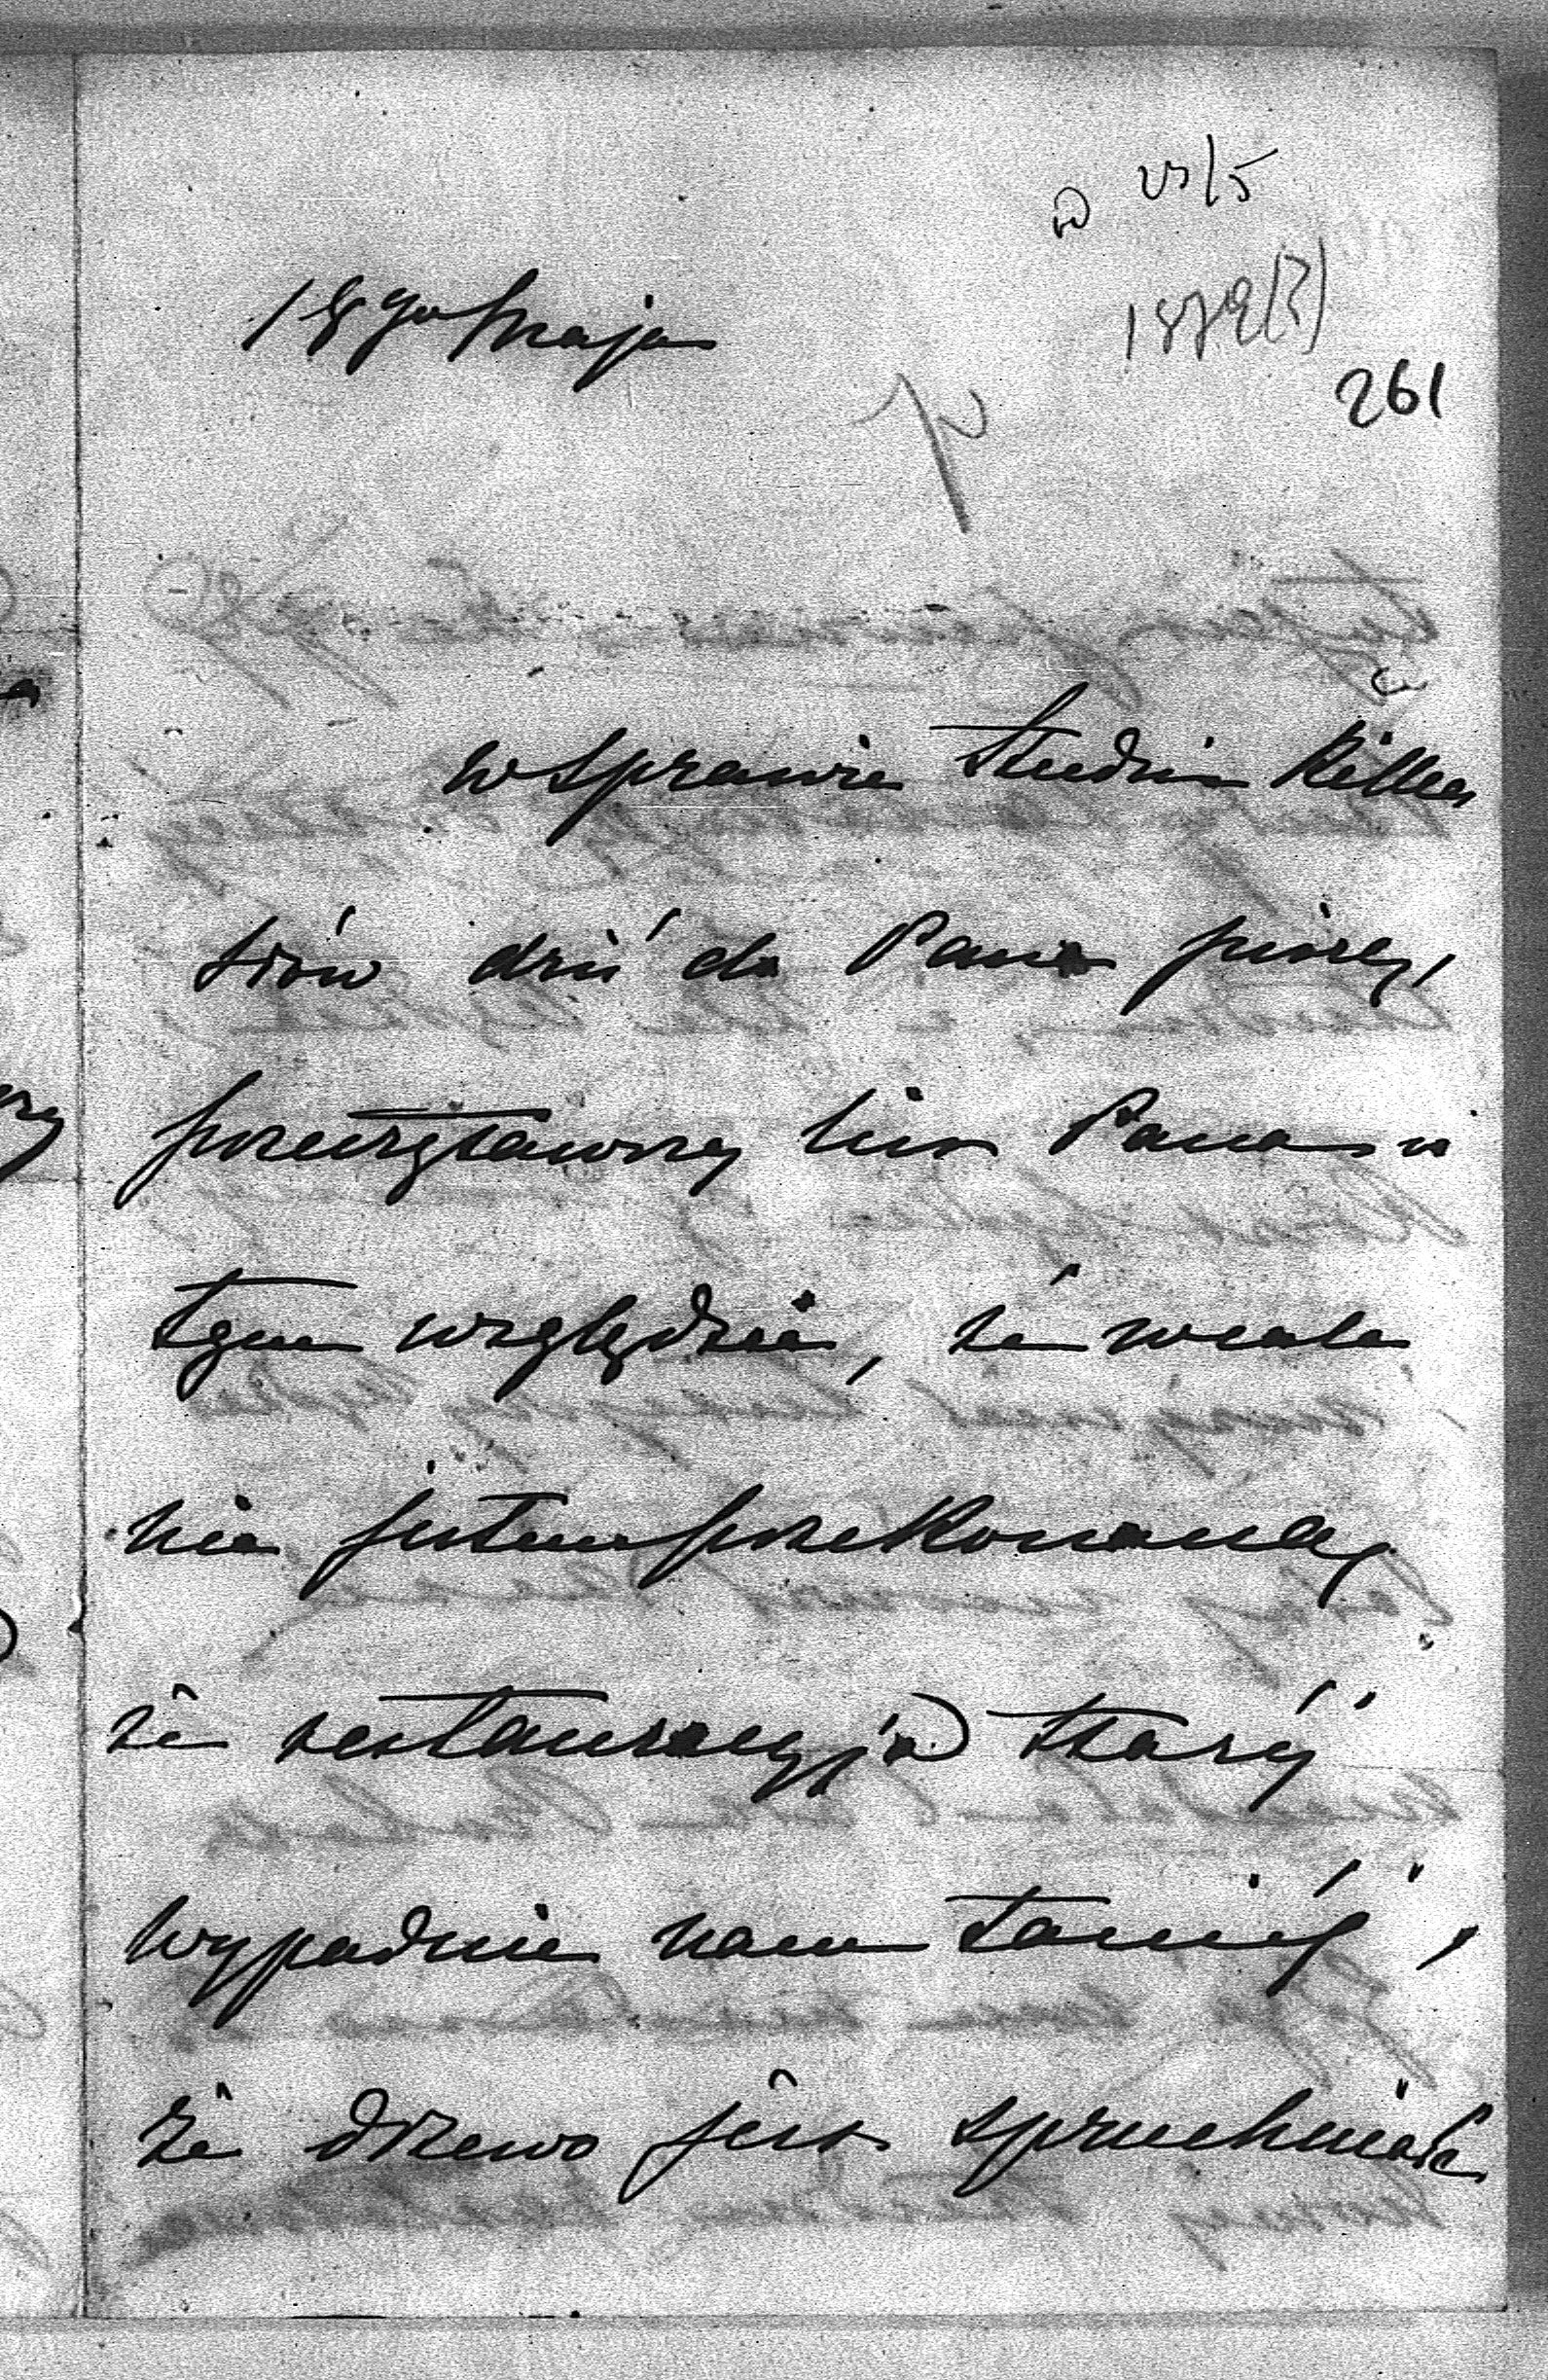 23/5
1879(?)
261
18go Maja
w sprawie studni kilka
słów dziś do Pana piszę,
przeczytawszy list Pana w
tym względzie, że wcale
nie jestem przekonaną
że restauracyja starej
wypadnie nam taniej,
że drzewo jest spruchniałe